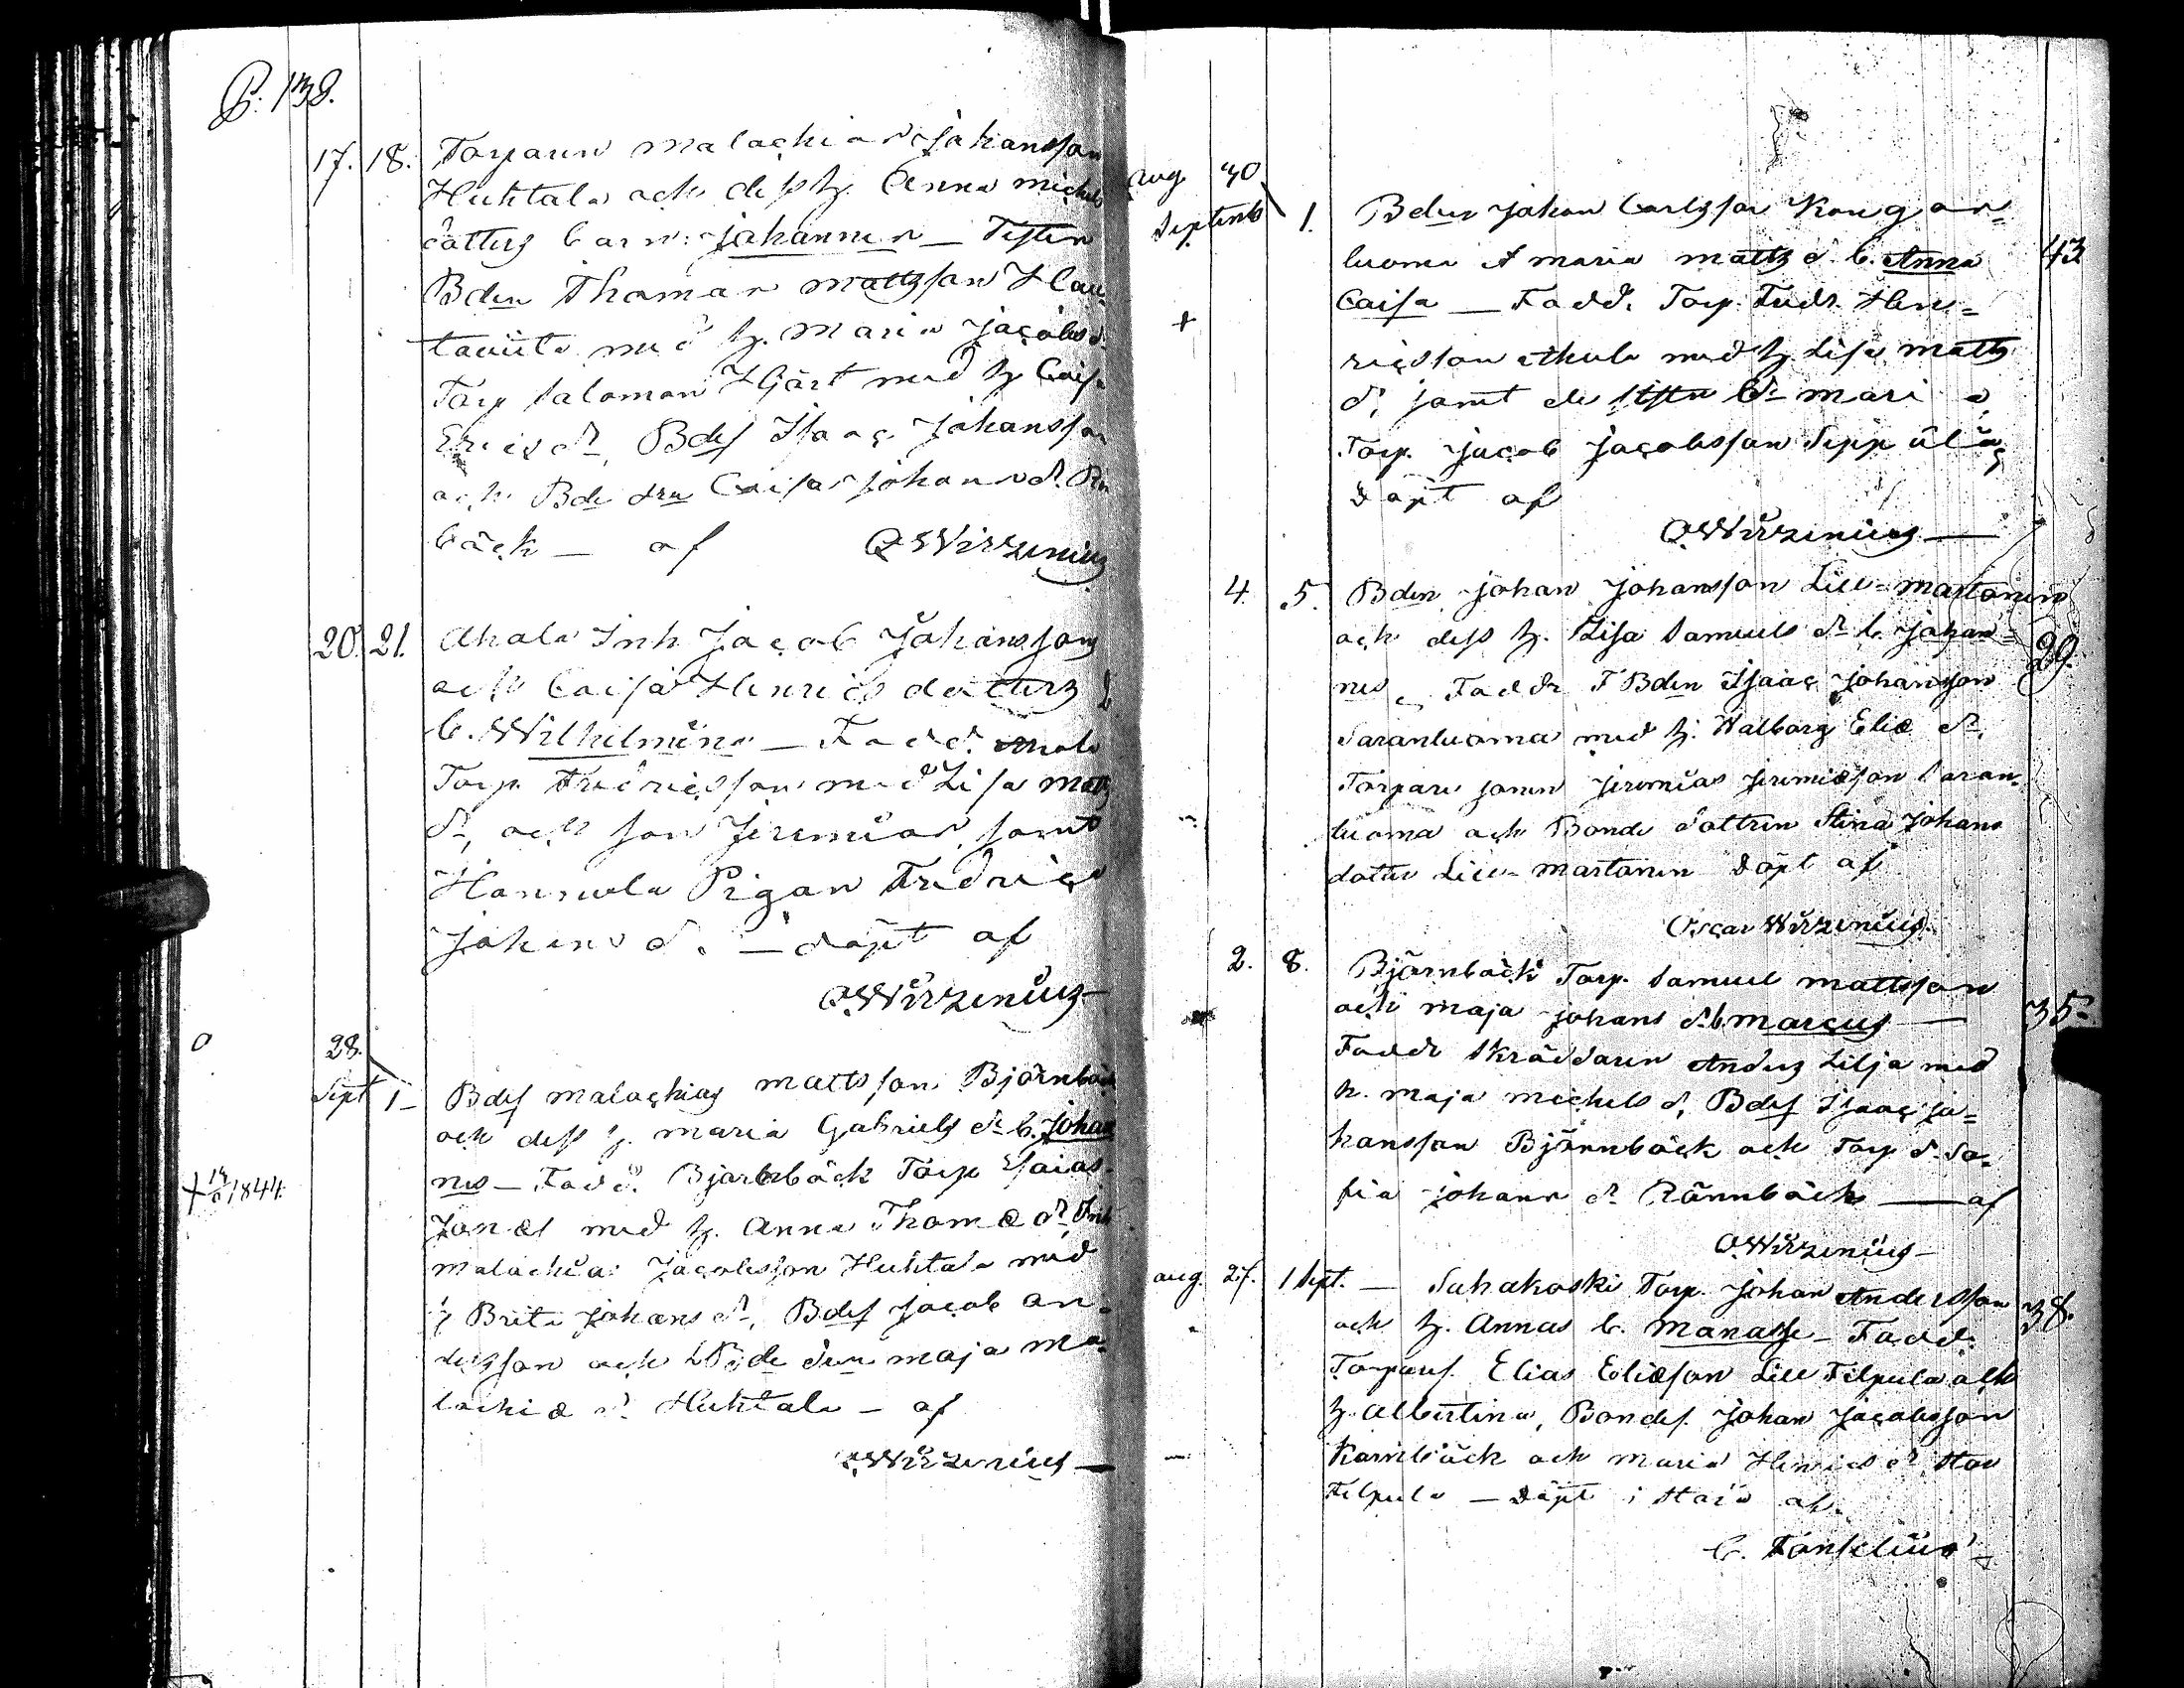 P. 138.
17. 18. Torparen Malachias Johansson
Huhtala och dess h. Anna Michels
dotters barn: Johannes — Testes
Bden Thomas Mattsson Hau-
taviita med h. Maria Jacobs d.
Torp Salomon Hjärt med h Caisa
Erics dr, Bdes Isaac Johansson
och Bde drn Caisa Johans d.
bäck — af OWirzenius
20. 21. Ahola Inh Jacob Johanssons
och Caisa Henrics dotters
b. Wilhelmina — Fadd.
Torp Fredricsson med Lisa Matts
dr, och son Jeremias, samt
Hannula Pigan Fredrica
Johans d. — döpt af
OWirzenius —
28.
Sept 1 — Bdes Malachias Mattsson Björnbäck
och dess h. Maria Gabriels dr b. Johan
nes — Fadd. Björnbäck Torp Esaias
Jonæs med h. Anna Thomæ dr, Inh
Malachias Jacobsson Huhtala med
h Brita Johans dr, Bdes Jacob An-
dersson och Bde drn Maja Ma-
lachiæ dr Huhtala — af
OWirzenius —
+ 1844.
Aug 30
Septemb 1. Bden Johan Carlsson Kongas-
luoma & Maria Matts d. b. Anna
Caisa — Fadd. Torp. Fredr. Hen-
ricsson Ahola med h. Lisa Matts
d. samt
Torp. Jacob Jacobsson
döpt af
OWirzenius —
43
4. 5. Bden Johan Johansson Lill-Martonen
och dess h. Lisa Samuels dr b. Johan-
nes, Faddr F Bden Isaac Johansson
Saranluoma med h. Walborg Eliæ dr,
Torpare sonen Jeremias Jeremiæson Saran-
luoma och Bonde dottren Stina Johans
dotter Lill-Martonen döpt af
Oscar Wirzenius.
29.
2. 8. Björnbäck Torp. Samuel Mattsson
och Maja Johans d. b. Marcus —
Faddr Skräddaren Anders Lilja med
h. Maja Michels d, Bdes Isaac Jo-
hansson Björnbäck och Torp d. So-
fia Johans dr Rännbäck — af
OWirzenius —
35.
aug. 27. 1 Sept. — Sahakoski Torp. Johan Andersson
och h. Annas b. Manasse — Fadd.
Torpares. Elias Eliæson Lill Filpula och
h. Albertina, Bondes. Johan Jacobsson
Kornbäck och Maria Henrics dr Stor
Filpula — döpt i af.
C. Forselius
38.